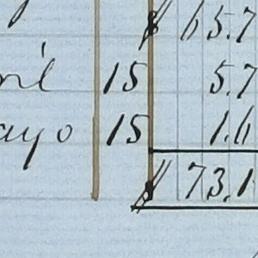 $ 65.7
ril 15 5.7
ayo 15 1.6
$ 73.1